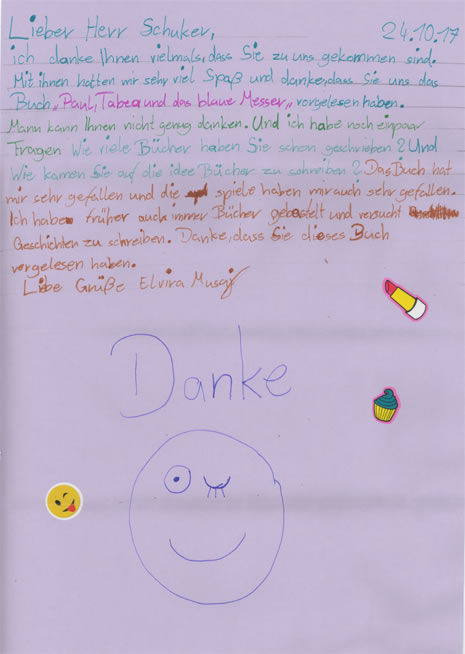 Lieber Herr Schuker,
24.10.17
ich danke Ihnen vielmals, dass Sie zu uns gekommen sind.
Mit ihnen hatten wir sehr viel Spaß und danke, dass Sie uns das
Buch „Paul, Tabea und das blaue Messer„ vorgelesen haben.
Mann kann Ihnen nicht genug danken. Und ich habe noch ein paar
Fragen Wie viele Bücher haben Sie schon geschrieben? Und
Wie kamen Sie auf die idee Bücher zu schreiben? Das Buch hat
mir sehr gefallen und die spiele haben mir auch sehr gefallen.
Ich habe früher auch immer Bücher gebastelt und versucht
Geschichten zu schreiben. Danke, dass Sie dieses Buch
vorgelesen haben.
Liebe Grüße Elvira
Danke